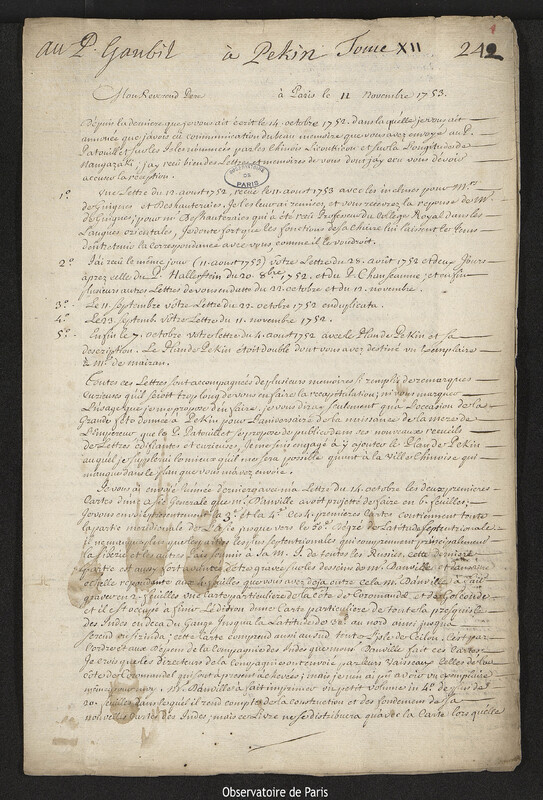 au P. Gaubil à Pekin Tome XII 242
Mon Reverend Pere à Paris le 11 Novembre 1753.
Depuis la derniere que je vous ai écrit le 14 octobre 1752. dans laquelle je vous ait
annoncé que j'avois eu communication du beau memoire que vous avez envoyé au P.
Patouillet sur les Isles connuës par les Chinois Lieoutcheou et sur la Longitude de
Nangazaki; j'ay reçu bien des Lettres et memoires de vous dont j'ay eu vous devoir
accuser la réception.
OBSERVATOIRE DE PARIS
1.° Une Lettre du 12. aout 1752, reçue le 11 aout 1753 avec les incluses pour M.rs
de Guignes et Deshauterais. Je les leur ai remises, et vous recevrez la reponse de M.r
de Guignes; pour M.r Deshauterais qui a été reçu Professeur du College Royal dans les
Langues orientales, je doute fort que les fonctions de sa Chaire lui laissent le tems
d'entretenir la correspondance avec vous comme il le voudroit.
2.° J'ai reçu le même jour (11 aout 1753) votre Lettre du 28. aout 1752 et deux Jours
après celle du P. Hallerstein du 20. 8.bre 1752. et du P. Chanseaume, et enfin
plusieurs autres Lettres de vous en datte du 22. octobre et du 12. novembre.
3.° Le 11 septembre votre Lettre du 22. octobre 1752 en duplicata.
4.° Le 23 septemb. votre Lettre du 11. novembre 1752.
5.° Enfin le 7. octobre votre lettre du 4. aout 1752 avec le Plan de Pekin et sa
description. Le Plan de Pekin etoit double dont vous avez destiné un Exemplaire
à M.r de mairan.
Toutes ces Lettres sont accompagnées de plusieurs memoires si remplis de remarques
curieuses qu'il seroit trop long de vous en faire la recapitulation, ni vous marquer
l'usage que je me propose d'en faire; je vous dirai seulement qu'à l'occasion de la
Grande fete donnée à Pekin pour l'anniversaire de la naissance de la mere de
l'Empereur que le P. Patouillet se propose de publier dans ses nouveaux recueils
de Lettres Edifiantes et curieuses, je me suis engagé à y ajouter le Plan de Pekin
auquel je suppléerai le mieux qu'il me sera possible quant à la ville Chinoise qui
manque dans le plan que vous m'avez envoié.
Je vous ai envoyé l'année derniere avec ma Lettre du 14. octobre les deux premieres
Cartes d'une Asie Generale que M. Danville avoit projetté de faire en 6. feuilles;
Je vous envoie presentement la 3.e et la 4.e Ces 4. premieres Cartes contiennent toute
la partie meridionale de l'Asie jusque vers le 50.e degré de Latitude septentrionale
il ne manque plus que les parties les plus septentrionales qui comprennent principalement
la siberie et les autres Pais soumis à sa M. I. de toutes les Russies. cette derniere
partie
et elle repondra aux 4. feuilles que vous avez deja outre cela M. Danville a fait
graver en 2. feuilles une Carte particuliere de la côte de Coromandel et de Golconde
et il est occupé à finir l'edition d'une Carte particuliere de toute la presqu'isle
des Indes en deça du Gange jusqu'à la Latitude de 20.d au nord ainsi jusqu'à
cette carte comprend aussi au sud toute l'Isle de Ceilan. C'est par
l'ordre et aux depens de la Compagnie des Indes que mons. Danville fait ces Cartes
Je crois que les Directeurs de la Compagnie ont envoié par leurs Vaisseaux celles de la
côte de Coromandel qui sont à present achevées; mais je n'en ai pû avoir un exemplaire
M. Danville a fait imprimer un petit volume in 4.° de plus de
20. feuilles dans lequel il rend compte de la construction et des fondemens de sa
nouvelle carte des Indes; mais ce Livre ne se distribuera qu'avec la Carte lorsqu'elle
Observatoire de Paris